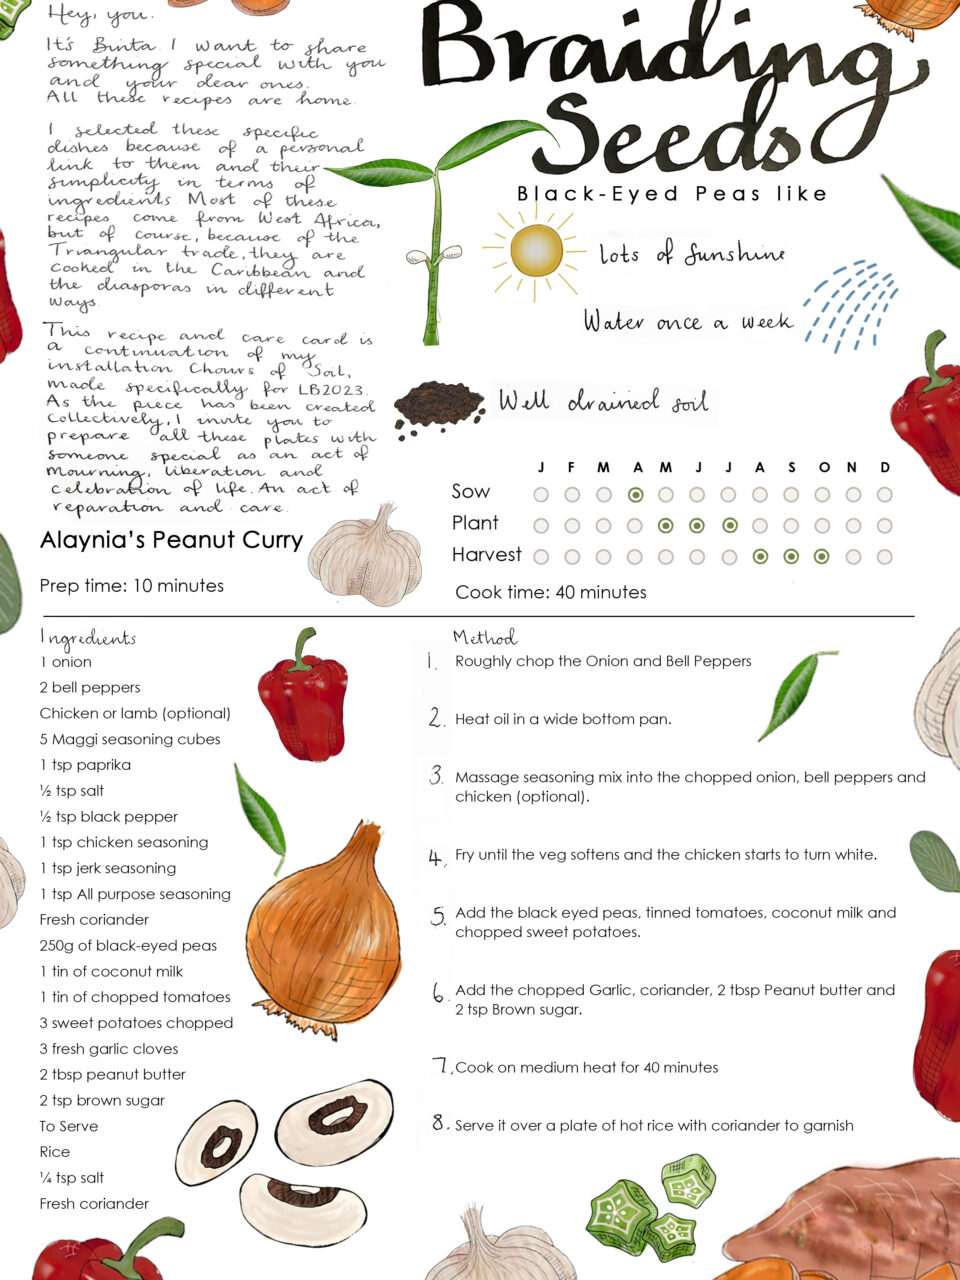 Hey, you.
It's Binta. I want to share
something special with you
and your dear ones.
All these recipes are home.
I selected these specific
dishes because of a personal
link to them and their
simplicity in terms of
ingredients. Most of these
recipes come from West Africa,
but of course, because of the
Triangular trade, they are
cooked in the Caribbean and
the diasporas in different
ways.
This recipe and care card is
a continuation of my
installation Chours of Soil,
made specifically for LB2023.
As the piece has been created
collectively, I invite you to
prepare all these plates with
someone special as an act of
mourning, liberation and
celebration of life. An act of
reparation and care.
Braiding
Seeds
Black-Eyed Peas like
Lots of Sunshine
Water once a week
Well drained soil
J F M A M J J A S O N D
Sow
Plant
Harvest
Alaynia's Peanut Curry
Prep time: 10 minutes
Cook time: 40 minutes
Ingredients
1 onion
2 bell peppers
Chicken or lamb (optional)
5 Maggi seasoning cubes
1 tsp paprika
½ tsp salt
½ tsp black pepper
1 tsp chicken seasoning
1 tsp jerk seasoning
1 tsp All purpose seasoning
Fresh coriander
250g of black-eyed peas
1 tin of coconut milk
1 tin of chopped tomatoes
3 sweet potatoes chopped
3 fresh garlic cloves
2 tbsp peanut butter
2 tsp brown sugar
To Serve
Rice
¼ tsp salt
Fresh coriander
Method
1. Roughly chop the Onion and Bell Peppers
2. Heat oil in a wide bottom pan.
3. Massage seasoning mix into the chopped onion, bell peppers and
chicken (optional).
4. Fry until the veg softens and the chicken starts to turn white.
5. Add the black eyed peas, tinned tomatoes, coconut milk and
chopped sweet potatoes.
6. Add the chopped Garlic, coriander, 2 tbsp Peanut butter and
2 tsp Brown sugar.
7. Cook on medium heat for 40 minutes
8. Serve it over a plate of hot rice with coriander to garnish